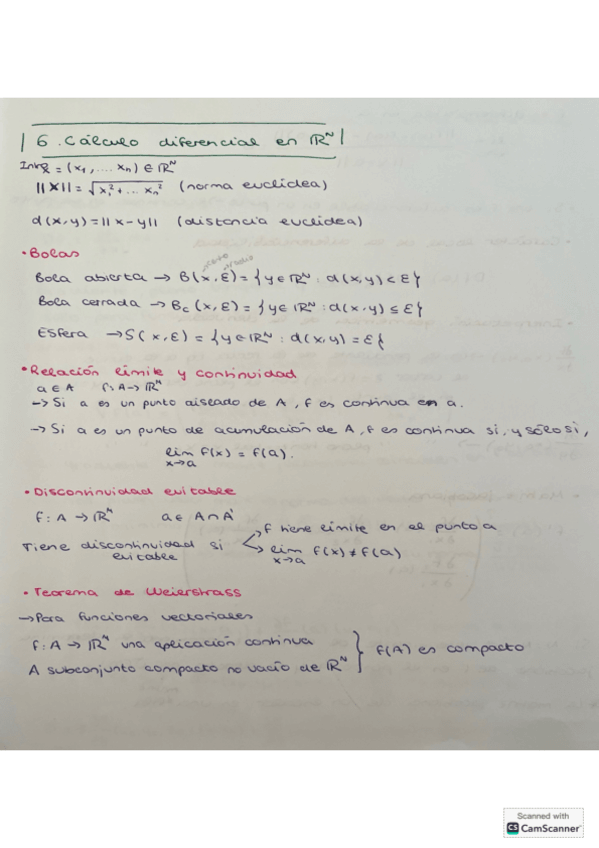 6. Cálculo diferencial en ℝᴺ
= (x₁, ... xₙ) ∈ ℝᴺ
||x|| = √x₁² + ... xₙ² (norma euclídea)
d(x,y) = ||x-y|| (distancia euclídea)
• Bolas
centro radio
Bola abierta → B(x,ε) = {y ∈ ℝᴺ : d(x,y) < ε}
Bola cerrada → Bc (x,ε) = {y ∈ ℝᴺ : d(x,y) ≤ ε}
Esfera → S(x,ε) = {y ∈ ℝᴺ : d(x,y) = ε}
• Relación límite y continuidad
a ∈ A f: A → ℝᴺ
→ Si a es un punto aislado de A, f es continua en a.
→ Si a es un punto de acumulación de A, f es continua si, y sólo si,
lim f(x) = f(a).
x→a
• Discontinuidad evitable
f: A → ℝᴺ a ∈ A ∩ A'
f tiene límite en el punto a
Tiene discontinuidad si
evitable
lim f(x) ≠ f(a)
x→a
• Teorema de Weierstrass
→ Para funciones vectoriales
f: A → ℝᴺ una aplicación continua
A subconjunto compacto no vacío de ℝᴺ } f(A) es compacto
Scanned with
CS CamScanner